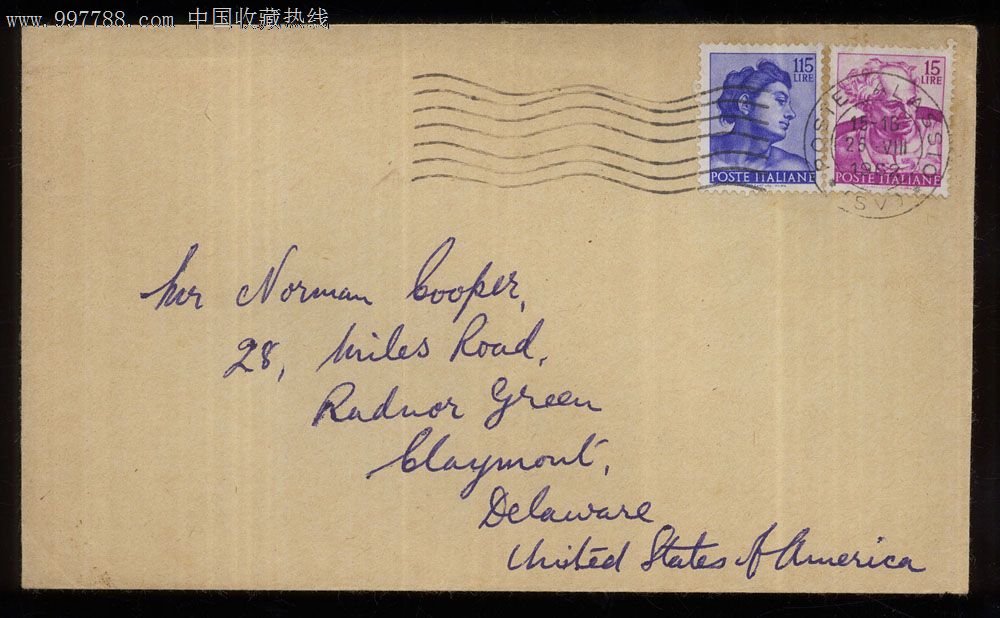 www.997788.com 中国收藏热线
115
LIRE
POSTE ITALIANE
15
LIRE
POSTE ITALIANE
POSTE ALASSIO (SV)
15-16
25 VIII
Mr Norman Cooper,
28, Miles Road,
Radnor Green
Claymont,
Delaware
United States of America